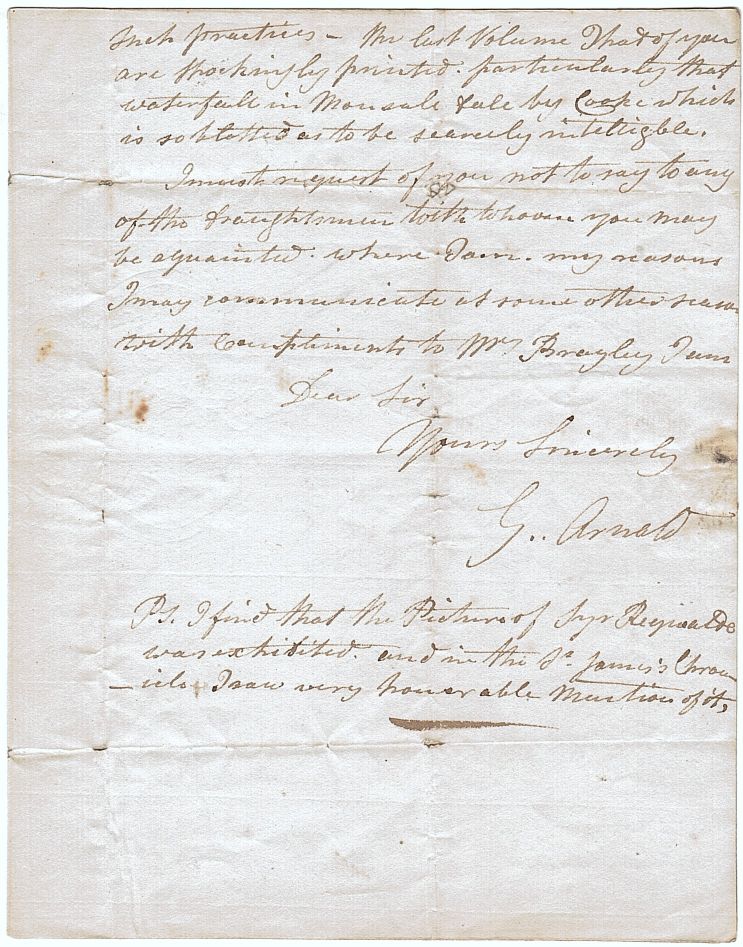 such practices – the last Volume I had of you
are shockingly printed. particularly that
waterfall in Monsale dale by Cooke which
is so blotted as to be scarcely intelligble.
I must request of you not to say to any
of the draughtsmen with whoom you may
be aquainted. where I am. my reasons
I may communicate at some other season
with Compliments to Mrs Brayley I am
Dear Sir
Yours Sincerely
G. Arnald
Ps. I find that the Picture of Syr Reginalde
was exhibited. and in the St. James's Chron
– icle I saw very honorable Mention of it,